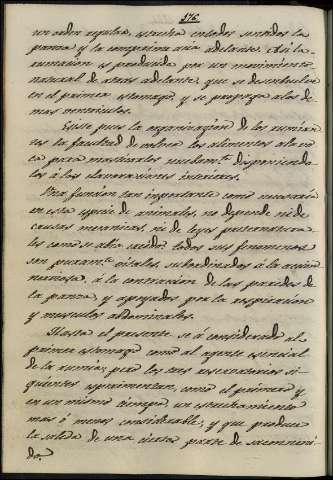 176
un orden regular, estrecha en todos sentidos la
panza y la comprime acia adelante. Asi la
rumiacion es producida por un movimiento
natural de atras adelante, que se desenbuelve
en el primer estomago, y se propaga a los de
mas ventriculos.
Existe pues la organizacion de los rumian
tes la facultad de volver los alimentos a la vo
ca para masticarlos nuebam.te disponiendo
los á las elavoraciones interiores.
Una funcion tan importante como necesaria
en esta especie de animales, no depende ni de
causas mecanicas, ni de leyes preternatura
les como se abia creido: todos sus fenomenos
son puram.te vitales, subordinados á la accion
nerviosa, á la contraccion de las paredes de
la panza, y apoyados por la respiracion
y musculos abdominales.
Hasta el presente se á considerado al
primer estomago como al agente esencial
de la rumia; pero los tres reservatorios si-
guientes esperimentan, como el primero y
en un mismo tiempo un estrechamiento
mas ó menos considerable, y que produce
la salida de una cierta parte de su conteni
do.